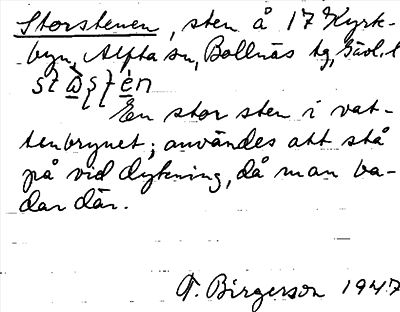 Storstenen, sten å 17 Kyrk-
byn, Alfta sn, Bollnäs tg, Gävl. l
En stor sten i vat-
tenbrynet; användes att stå
på vid dykning, då man ba-
dar där.
T. Birgerson 1947